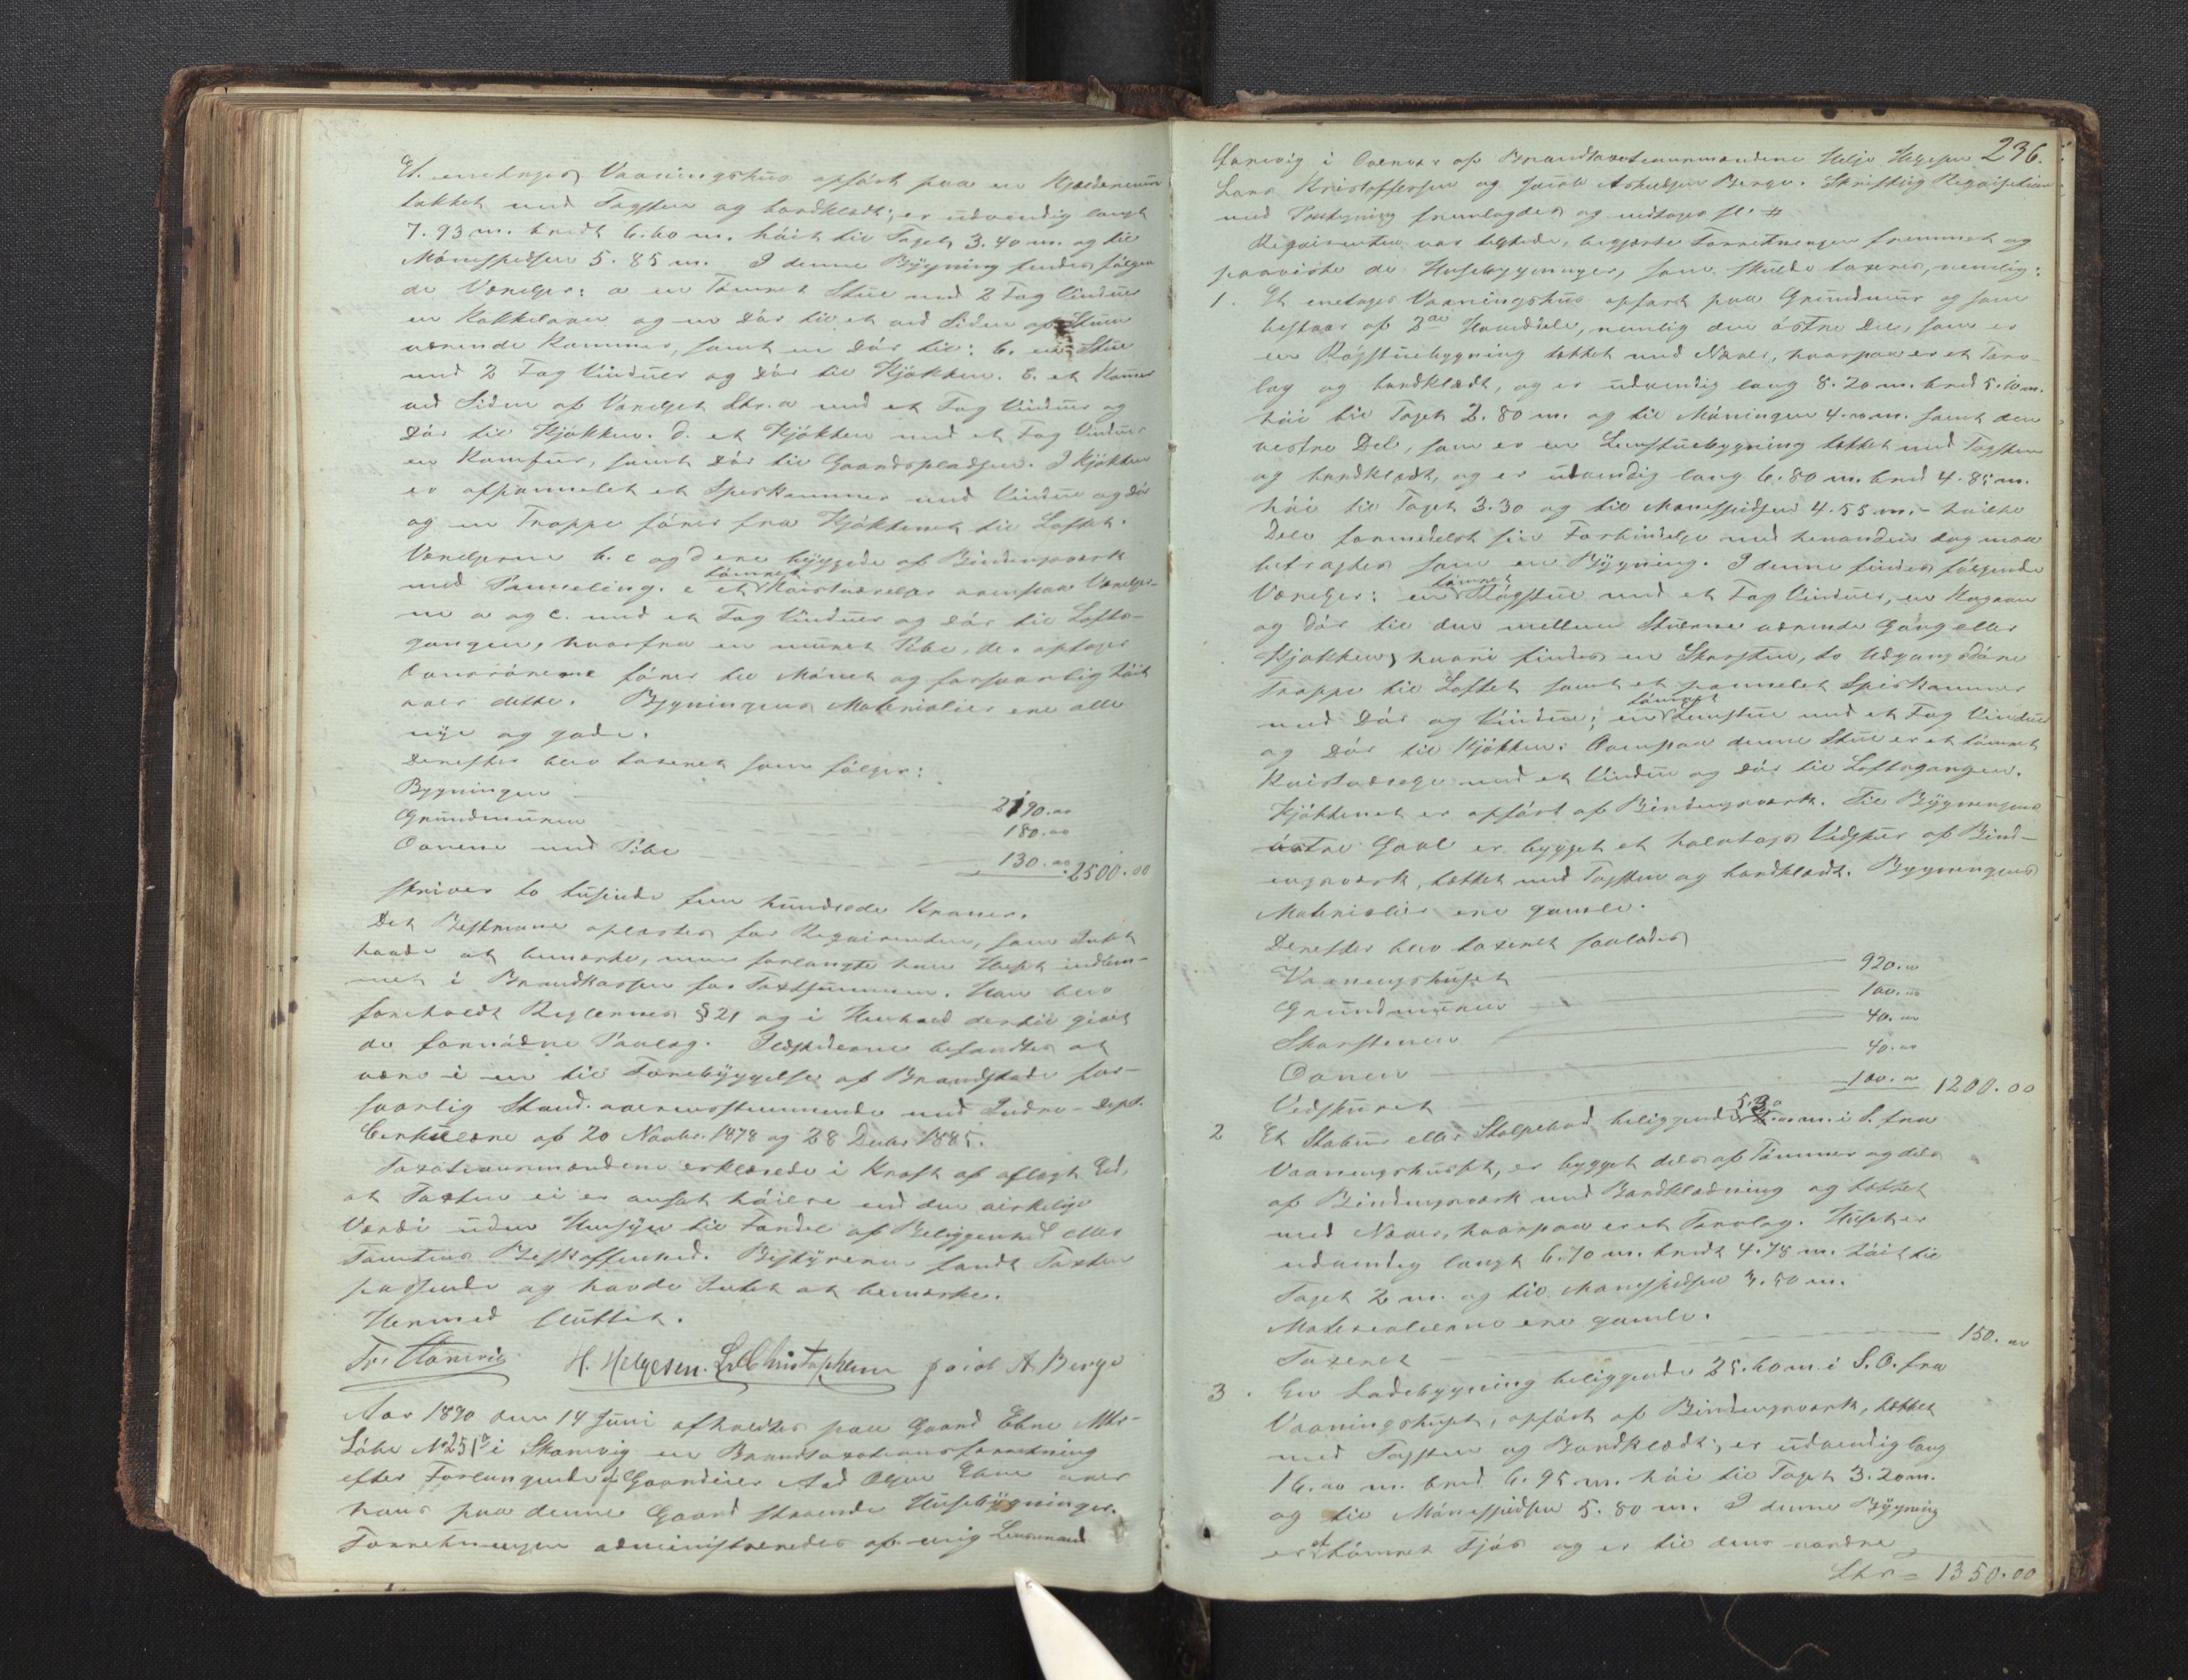 Et enetages Vaaningshus opført paa en Kjældermuur
takket med Tagsten og bordklædt; er udvendig langt
7.93 m. bredt 6.60 m. høit til Taget 3.40 m. og til
Mønespidsen 5.85 m. I denne Bygning findes følgen
de Værelser: a en tømret Stue med 2 Fag Vinduer
en Kakkelovn og en Dør til et ved Siden af Stuen
værende Kammer, samt en Dør til: b. en Stue
med 2 Fag Vinduer og Dør til Kjøkken. c. et Kamer
ved Siden af Værelset Litr. a med et Fag Vinduer og
Dør til Kjøkken. d. et Kjøkken med et Fag Vinduer
en Komfur, samt Dør til Gaardspladsen. I Kjøkken
er afpannelet et Speskammer med Vindue og Dør
og en Trappe fører fra Kjøkkenet til Loftet.
Værelserne b. c og d ere byggede af Bindingsværk
med Panneling. e et tømret Kvistværelse ovenpaa Værelser-
ne a og c. med et Fag Vinduer og Dør til Lofts-
gangen, hvorfra en muret Pibe, der optager
Ovnsrørene fører til Mønet og forsvarlig høit
over dette. Bygningens Materialier ere alle
nye og gode.
Derefter blev taxeret som følger:
Bygningen 2190.00
Grundmuren 180.00
Ovnene med Pibe 130.00 2500.00
skriver to tusinde fem hundrede Kroner.
Det Beskrevne oplæstes for Rekvirenten, som Intet
havde at bemærke, men forlangte hans Huset indlem-
met i Brandkassen for Taxtsummen. Han blev
foreholdt Reglernes § 21 og i Henhold dertil givet
de fornødne Paalæg. Ildstederne befandtes at
være i en til Forebyggelse af Brandskade for-
svarlig Stand overensstemmende med Indre-Dept.
Cirkulære af 20 Novbr. 1878 og 28 Decbr 1885.
Taxationsmændene erklærede i Kraft af aflagt Ed,
at Taxten ei er ansat høiere end den virkelige
Værdi uden Hensyn til Fordel af Beliggenhed eller
Tomtens Beskaffenhed. Bestyreren fandt Taxten
passende og havde Intet at bemærke.
Hermed sluttet.
H. Helgesen. L. Christophersen Jacob A. Berge
Aar 1890 den 14 Juni afholdtes paa Gaard Ebne Mtr-
Løbe No 251a i Skonevig en Brandtaxationsforretning
efter Forlangende af Gaardeier Aad Olsen Ebne over
hans paa denne Gaard staaende Husebygninger.
Forretningen administreredes af mig Lensmand
236.
i Overvær af Brandtaxationsmændene Helje Helgesen
Lars Kristoffersen og Jacob Berge. Skriftlig Rekvisition
med Paategning fremlagdes og indtages sl. #
Rekvirenten var tilstede, begjærte Forretningen fremmet og
paaviste de Husebygninger, som skulde taxeres, nemlig:
1. Et enetages Vaaningshus opført paa Grundmur og som
bestaar af 2de Hoveddele, nemlig den østre Del, som er
en Røgstuebygning tækket med Næver, hvorpaa er et Torv-
lag og bordklædt, og er udvendig lang 8.20 m. bred 5.10 m.
høi til Taget 2.80 m. og til Møningen 4.00 m. samt den
vestre Del, som er en Lemstuebygning tækket med Tagsten
og bordklædt, og er udvendig lang 6.80 m. bred 4.85 m.
høi til Taget 3.30 og til Mønespidsen 4.55 m. - hvilke
Dele formedelst sin Forbindelse med hinanden dog maa
betragtes som en Bygning. I denne findes følgende
Værelser: en tømret Røgstue med et Fag Vinduer, en Kogeovn
og Dør til den mellem Stuerne værende Gang eller
Kjøkken, hvori findes en Skorsten, to Udgangsdøre
Trappe til Loftet samt et pannelet Spiskammer
med Dør og Vindue; en tømret Lemstue med et Fag Vinduer
og Dør til Kjøkken: Ovenpaa denne Stue er et tømret
Kvistværelse med et Vindue og Dør til Loftsgangen.
Kjøkkenet er opført af Bindingsværk. Til Bygningens
østre Gavl er bygget et halvtags Vedskur af Bind-
ingsværk, tækket med Tagsten og bordklædt. Bygningens
Materialier ere gamle.
Derefter blev taxeret saaledes
Vaaningshuset 920.00
Grundmuren 100.00
Skorstenen 40.00
Ovnen 40.00
Vedskuret 100.00 1200.00
2 Et Stabur eller Stolpebod beliggende 5.30 m. i S. fra
Vaaningshuset, er bygget dels af Tømmer og dels
af Bindingsværk med Bordklædning og tækket
med Næver, hvorpaa er et Torvlag. Huset er
udvendig langt 6.70 m. bredt 4.78 m. høit til
Taget 2 m. og til Mønespidsen 3.50 m.
Materialierne ere gamle.
Taxeret 150.00
3. En Ladebygning beliggende 25.60 m. i S.O. fra
Vaaningshuset, opført af Bindingsværk, tækket
med Tagsten og Bordklædt; er udvendig lang
16.00 m. bred 6.95 m. høi til Taget 3.20 m.
og til Mønespidsen 5.80 m. I denne Bygning
er et tømret Fjøs og er til dens nordre
Ltr = 1350.00